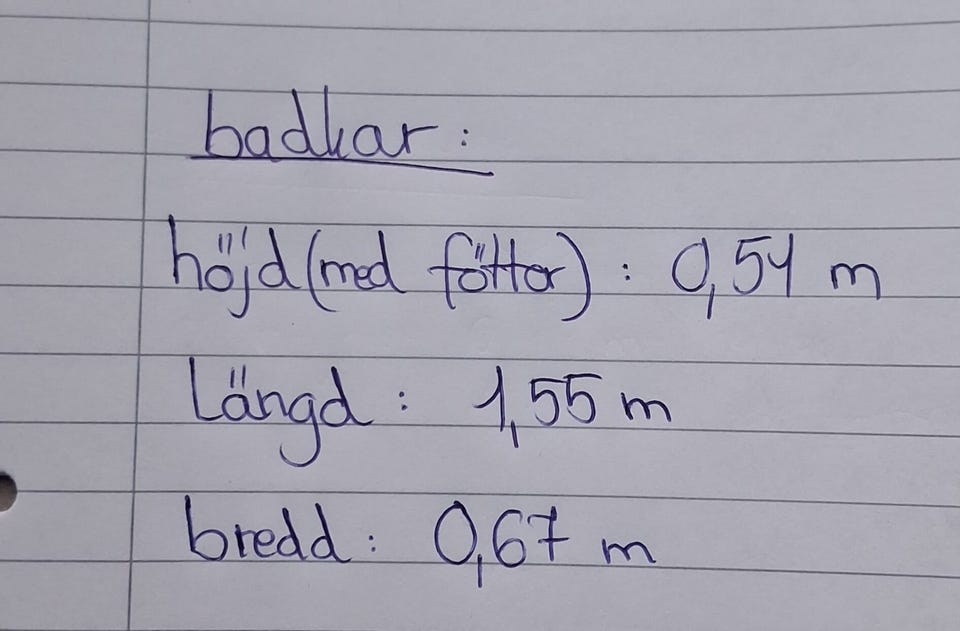 badkar:
höjd (med fötter) : 0,54 m
Längd : 1,55 m
bredd : 0,67 m